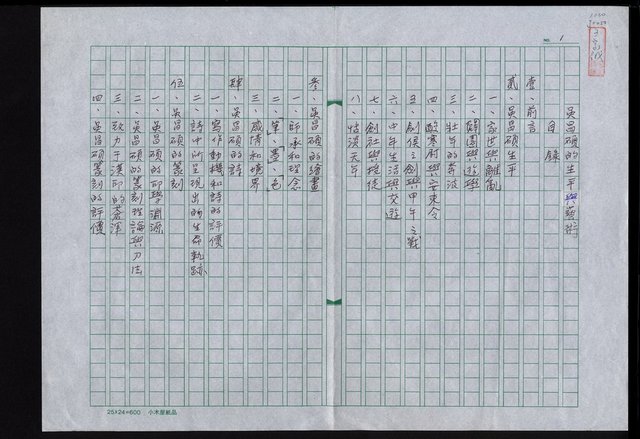 NO. 1
吳昌碩的生平與藝術
目錄
壹、前言
貳、吳昌碩生平
一、家世與離亂
二、歸園與游學
三、壯年的奔波
四、酸寒尉與安東令
五、劍侯之劍與甲午之戰
六、中年生活與交遊
七、創社與授徒
八、恬淡天年
參、吳昌碩的繪畫
一、師承和理念
二、「筆」、「墨」、「色」
三、感情和境界
肆、吳昌碩的詩
一、寫作動機和詩的評價
二、詩中所呈現出的生命軌跡
伍、吳昌碩的篆刻
一、吳昌碩的印學淵源
二、吳昌碩的篆刻理論與刀法
三、致力于漢印的蒼渾
四、吳昌碩篆刻的評價
25×24=600 小木屋紙品